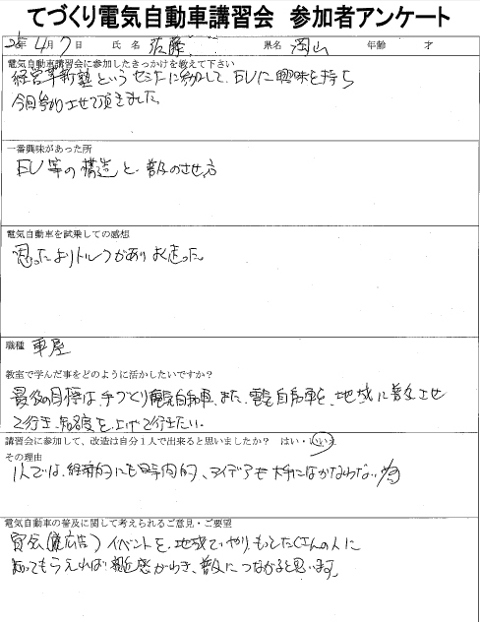 てづくり電気自動車講習会 参加者アンケート
年4月7日 氏名 佐藤 県名 岡山 年齢 才
電気自動車講習会に参加したきっかけを教えて下さい
経営革新塾というセミナーに参加して、EVに興味を持ち
今回参加させて頂きました。
一番興味があった所
EV等の構造と、普及のさせ方
電気自動車を試乗しての感想
思ったよりトルクがありよく走った。
職種 車屋
教室で学んだ事をどのように活かしたいですか？
最後の目標は手づくり電気自動車、また、電気自動車を、地域に普及させ
て行き、知名度を上げて行きたい。
講習会に参加して、改造は自分1人で出来ると思いましたか？ はい・いいえ
その理由
1人では、経済的にも時間的、アイデアも大手にはかなわない為
電気自動車の普及に関して考えられるご意見・ご要望
試乗会（広告）イベントを、地域でやり、もっとたくさんの人に
知ってもらえれば親近感がわき、普及につながると思います。